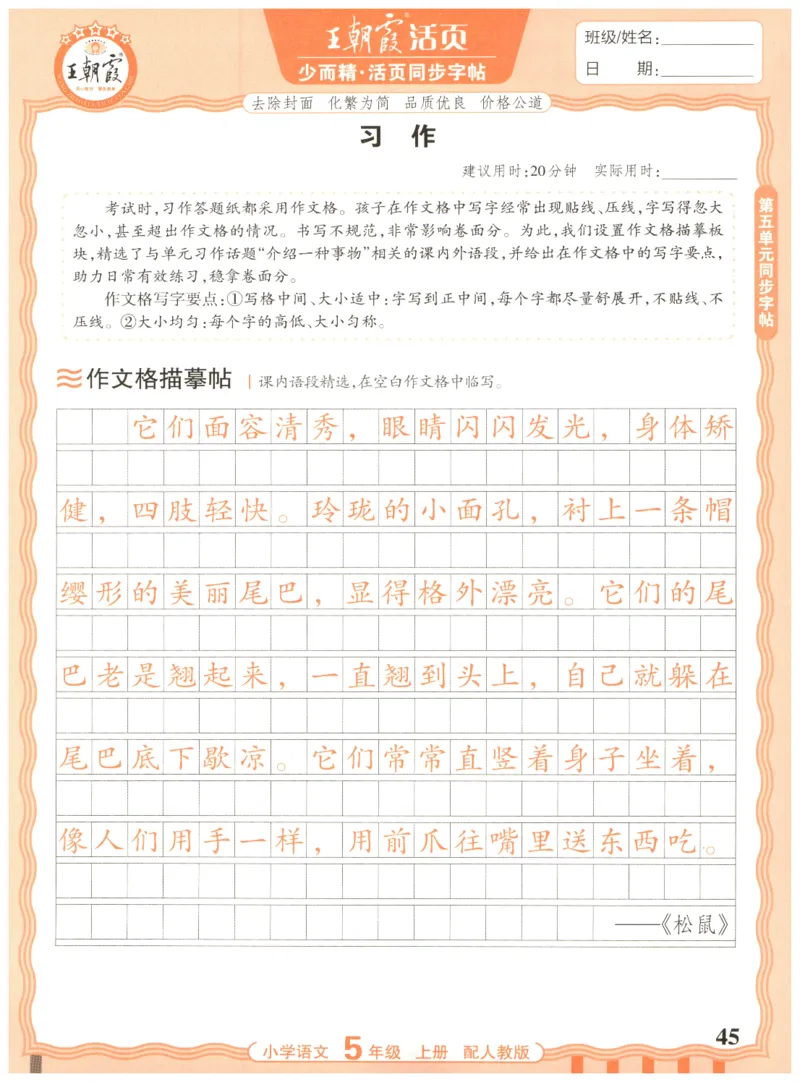 王朝霞
王朝霞®活页
少而精·活页同步字帖
班级/姓名:
日 期:
去除封面 化繁为简 品质优良 价格公道
习 作
建议用时:20分钟 实际用时:
考试时,习作答题纸都采用作文格。孩子在作文格中写字经常出现贴线、压线,字写得忽大
忽小,甚至超出作文格的情况。书写不规范,非常影响卷面分。为此,我们设置作文格描摹板
块,精选了与单元习作话题“介绍一种事物”相关的课内外语段,并给出在作文格中的写字要点,
助力日常有效练习,稳拿卷面分。
作文格写字要点:①写格中间、大小适中:字写到正中间,每个字都尽量舒展开,不贴线、不
压线。②大小均匀:每个字的高低、大小匀称。
第五单元同步字帖
作文格描摹帖 课内语段精选,在空白作文格中临写。
它们面容清秀，眼睛闪闪发光，身体矫
健，四肢轻快。玲珑的小面孔，衬上一条帽
缨形的美丽尾巴，显得格外漂亮。它们的尾
巴老是翘起来，一直翘到头上，自己就躲在
尾巴底下歇凉。它们常常直竖着身子坐着，
像人们用手一样，用前爪往嘴里送东西吃。
——《松鼠》
45
小学语文 5年级 上册 配人教版